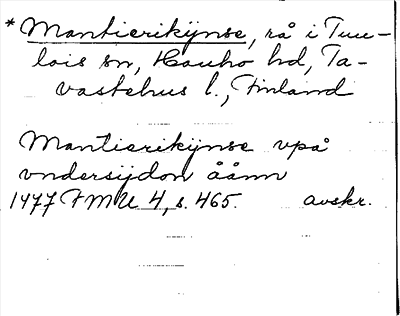 *Mantierikÿnse, rå i Tuu-
lois sn, Hauho hd, Ta-
vastehus l., Finland
Mantierikÿnse vpå
vndersÿdon åånn
1477 FMU 4, s. 465. avskr.